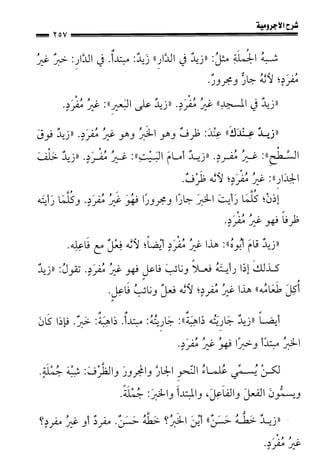 شرح الآجرومية
٢٥٧
شبهُ الجُملَةِ مثلُ: «زيدٌ في الدَّارِ» زَيدٌ: مبتدأٌ. في الدَّارِ: خبرٌ غيرُ
مُفرَدٍ؛ لأنَّهُ جارٌّ ومجرورٌ.
«زيدٌ في المسجدِ» غيرُ مُفْرَدٍ. «زيدٌ على البَعيرِ»: غيرُ مُفْرَدٍ.
«زيـدٌ عِنْدَكَ» عِنْدَ: ظرفٌ وهو الخَبَرُ وهو غيرُ مُفْرَدٍ. «زيدٌ فوقَ
السَّطْحِ»: غيـرُ مُفـردٍ. «زيـدٌ أمامَ البَيْتِ»: غيـرُ مُفْـرَدٍ. «زيدٌ خَلْفَ
الجِدَارِ»: غيرُ مُفْرَدٍ؛ لأنَّه ظَرْفٌ.
إذن؛ كُلَّمَا رأيتَ الخبرَ جارًا ومجرورًا فهُوَ غَيرُ مُفرَدٍ. وكُلَّمَا رَأيتَه
ظرفاً فهو غيرُ مُفْرَدٍ.
«زيدٌ قامَ أبُوهُ»: هذا غيرُ مُفْرَدٍ أيضاً؛ لأنَّه فِعْلٌ مع فاعِلِه.
كـذلـكَ إذا رأيـتَهُ فعـلاً ونائبَ فاعلٍ فهو غيرُ مُفْرَدٍ. تقولُ: «زيدٌ
أُكِلَ طَعَامُه» هذا غيرُ مُفردٍ؛ لأنَّه فعلٌ ونائبُ فَاعِلٍ.
أيضـاً «زيدٌ جَاريَتُه ذَاهبَةٌ»: جَاريَتُهُ: مبتدأٌ. ذَاهبَةٌ: خَبَرٌ. فإذا كَانَ
الخبرُ مبتدأً وخبرًا فهوُ غيرُ مُفْرَدٍ.
لكـنْ يُسمِّي عُلمـاءُ النَّحوِ الجارَّ والمجرورَ والظَّرْفَ: شِبْهَ جُمْلَةٍ.
ويسمُّونَ الفعلَ والفَاعِلَ، والمبتدأَ والخبرَ: جُمْلَةً.
«زيـدٌ خطُّـهُ حَسَنٌ» أيْنَ الخَبَرُ؟ خَطُّهُ حَسَنٌ. مفردٌ أو غير مفردٍ؟
غيرُ مُفْرَدٍ.